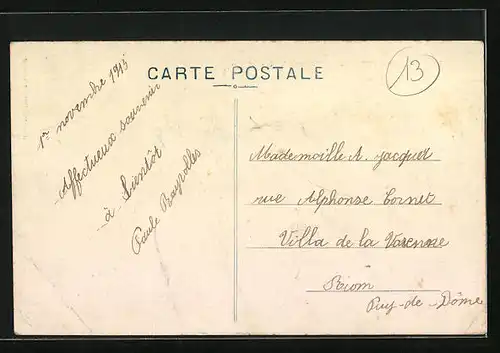 CARTE POSTALE
13
1er novembre 1913
Affectueux souvenir
à bientôt
Paule
Mademoille A. Jacquet
rue Alphonse Cornet
Villa de la Varenne
Riom
Puy-de-Dôme